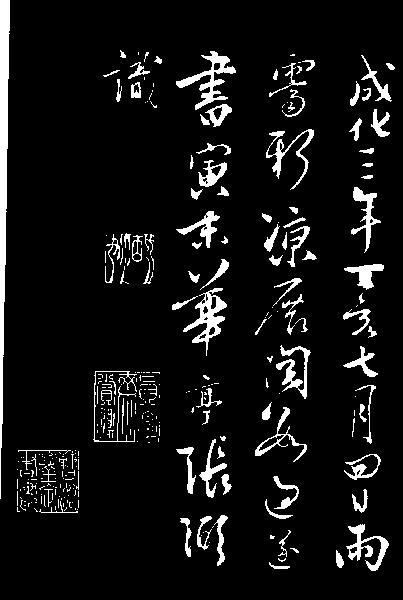 成化三年丁亥七月四日雨
霽新涼展閱數過遂
書寅末華亭張弼
識